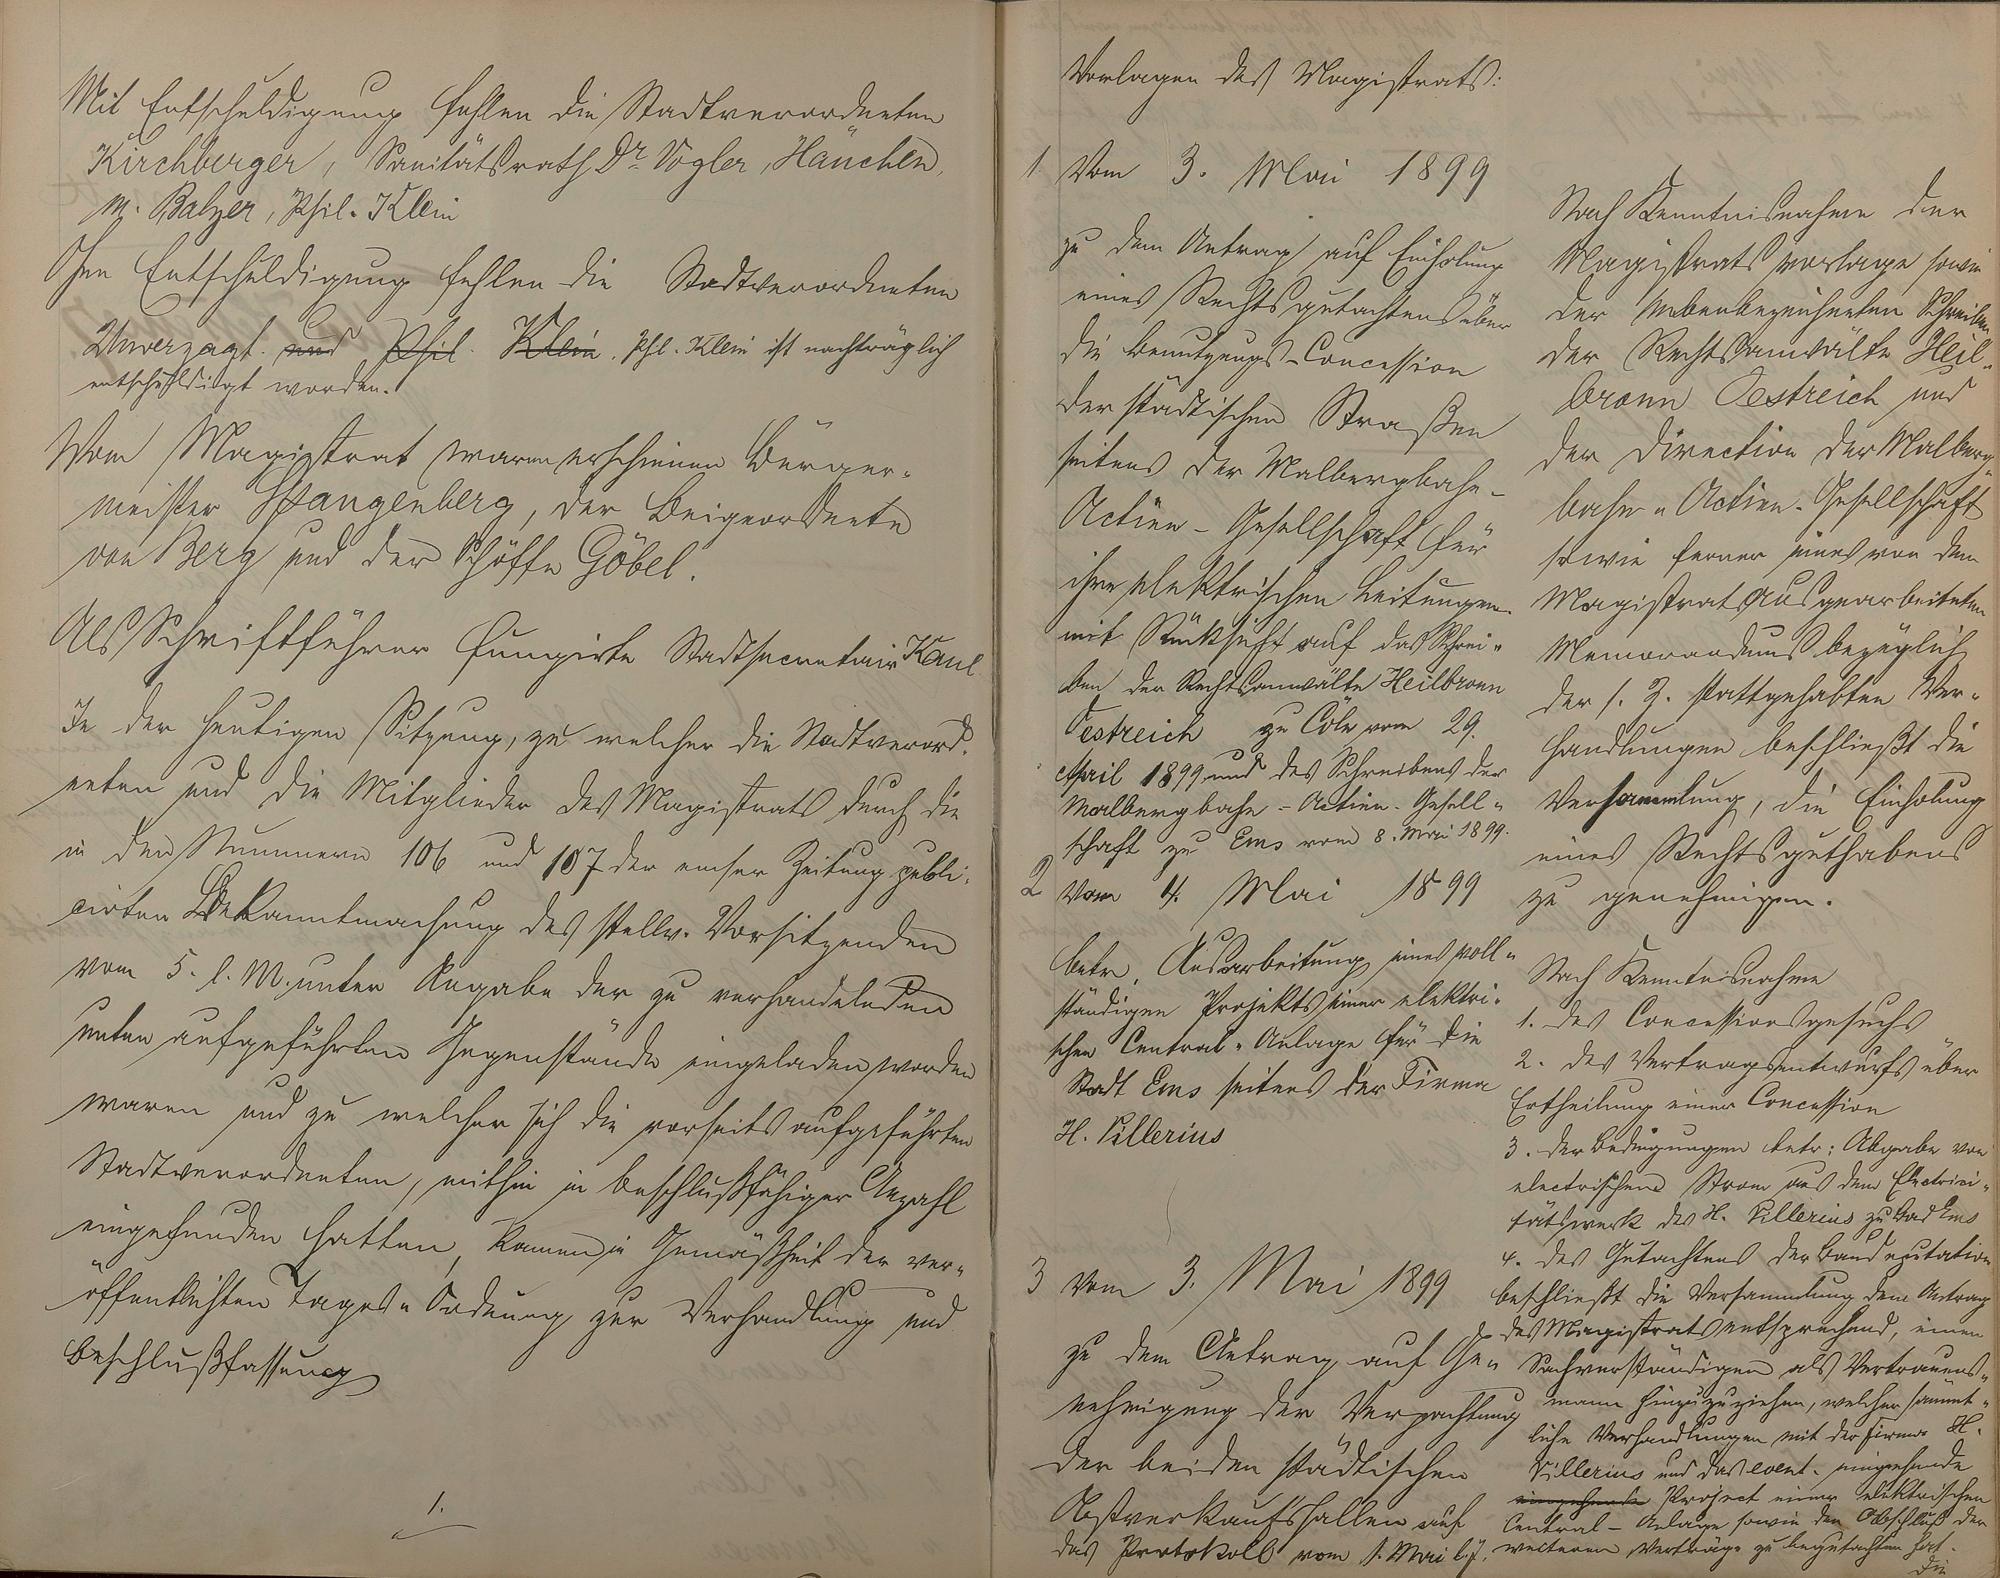 Mit Entschuldigung fehlen die Stadtverordneten
Kirchberger, Sanitätsrath Dr. Vogler, Hänchen,
M. Balzer, Phil. Klein
Ohne Entschuldigung fehlen die Stadtverordneten
Unverzagt und Phil. Klein. Phl. Klein ist nachträglich
entschuldigt worden.
Vom Magistrat waren erschienen Bürger-
meister Spangenberg, der Beigeordnete
von Berg und der Schöffe Göbel.
Als Schriftführer fungirte Stadtsecretair Kaul.
In der heutigen Sitzung, zu welcher die Stadtverord-
neten und die Mitglieder des Magistrats durch die
in den Nummern 106 und 107 der emser Zeitung publi-
cirten Bekanntmachung des stellv. Vorsitzenden
vom 5. l. M. unter Angabe der zu verhandelnden
unten aufgeführten Gegenstände eingeladen worden
waren und zu welcher sich die vorseits aufgeführten
Stadtverordneten, mithin in beschlußfähiger Anzahl
eingefunden hatten, kamen in Gemäßheit der ver-
öffentlichten Tages-Ordnung zur Verhandlung und
Beschlußfassung
1.
Vorlagen des Magistrats:
1 Vom 3. Mai 1899
zu dem Antrag auf Einholung
eines Rechtsgutachtens über
die Benutzungs-Concession
der städtischen Straßen
seitens der Malbergbahn-
Actien-Gesellschaft für
ihre elektrischen Leitungen
mit Rücksicht auf das Schrei-
ben der Rechtsanwälte Heilbronn
Oestreich zu Cöln vom 29.
April 1899 und des Schreibens der
Malbergbahn-Actien-Gesell-
schaft zu Ems vom 8. Mai 1899.
2 Vom 4. Mai 1899
betr. Ausarbeitung eines voll-
ständigen Projekts einer elektri-
schen Central-Anlage für die
Stadt Ems seitens der Firma
H. Villerius
3 Vom 3. Mai 1899
zu dem Antrag auf Ge-
nehmigung der Verpachtung
der beiden städtischen
Obstverkaufshallen auf
das Protokoll vom 1. Mai l. J.
Nach Kenntnisnahme der
Magistratsvorlage sowie
der nebenbezeichneten Schreiben
der Rechtsanwälte Heil-
bronn Oestreich und
der Direction der Malberg-
bahn-Actien-Gesellschaft
sowie ferner eines von dem
Magistrat ausgearbeiteten
Memorandums bezüglich
der s. Z. stattgehabten Ver-
handlungen beschließt die
Versammlung, die Einholung
eines Rechtsguthabens
zu genehmigen.
Nach Kenntnisnahme
1. des Concessionsgesuchs
2. des Vertragsentwurfs über
Ertheilung einer Concession
3. der Bedingungen betr: Abgabe von
electrischem Strom aus dem Electrici-
tätswerk des H. Villerius zu Bad Ems
4. des Gutachtens der Baudeputation
beschließt die Versammlung dem Antrag
des Magistrats entsprechend, einen
Sachverständigen als Vertrauens-
mann hinzuzuziehen, welcher sämmt-
liche Verhandlungen mit der Firma H.
Villerius und das event. eingehende
eingehende Project einer elektrischen
Central-Anlage sowie den Abschluß der
weiteren Verträge zu begutachten hat.
Die